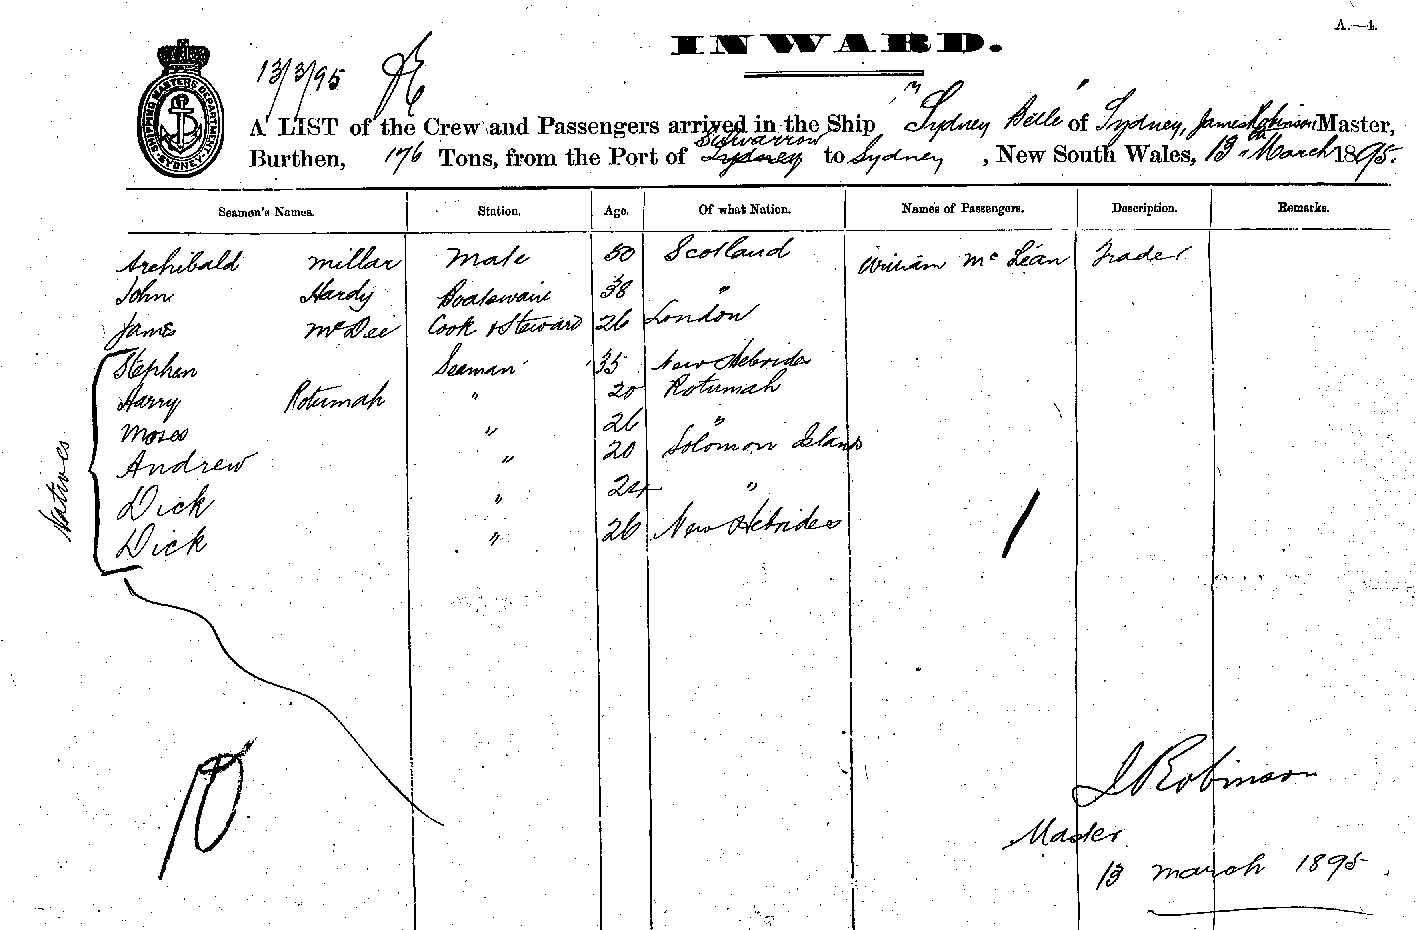 A.—4.
INWARD.
13/3/95
SHIPPING MASTERS DEPARTMENT SYDNEY
A LIST of the Crew and Passengers arrived in the Ship "Sydney Belle" of Sydney, James Robinson Master,
Burthen, 176 Tons, from the Port of Sydney Suwarrow to Sydney, New South Wales, 13th March 1895.
Seamen's Names. Station. Age. Of what Nation. Names of Passengers. Description. Remarks.
Archibald Millar Mate 50 Scotland William McLean Trader
John Hardy Boatswain 38 "
James McDee Cook & Steward 26 London
Stephen Seaman 35 New Hebrides
Harry Rotumah " 20 Rotumah
Moses " 26 "
Andrew " 20 Solomon Island
Dick " 24 "
Dick " 26 New Hebrides
Natives
1
10
J Robinson
Master
13 March 1895.